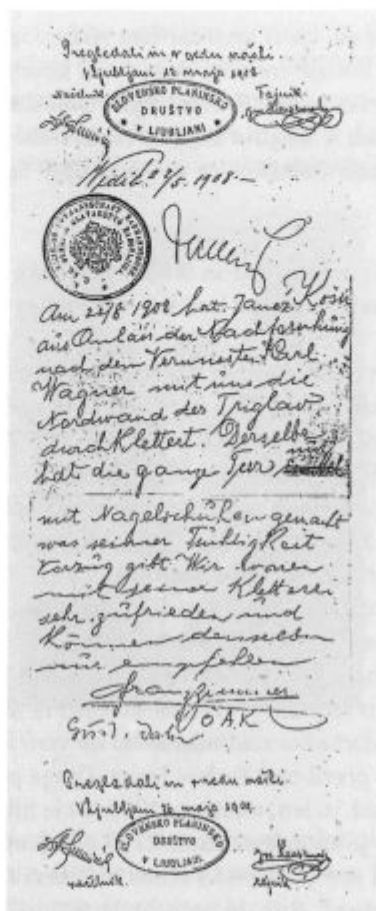 Pregledali in v redu našli.
V Ljubljani 12 maja 1908
načelnik
Tajnik
SLOVENSKO PLANINSKO
DRUŠTVO
V LJUBLJANI
1908
Am 22/8 1908 hat Janez Košir
aus Anlass der Nachforschung
nach dem Vermissten Karl
Wagner mit uns die
Nordwand des Triglav
durchklettert. Derselbe
hat die ganze Tour
mit Nagelschuhen gemacht
was seiner Tüchtigkeit
gibt. Wir waren
mit seiner Kletterei
sehr zufrieden und
können denselben
nur empfehlen
Franz Zimmer
ÖAK
Gust. Jahn
Pregledali in v redu našli
V Ljubljani maja
SLOVENSKO PLANINSKO
DRUŠTVO
V LJUBLJANI
načelnik
tajnik